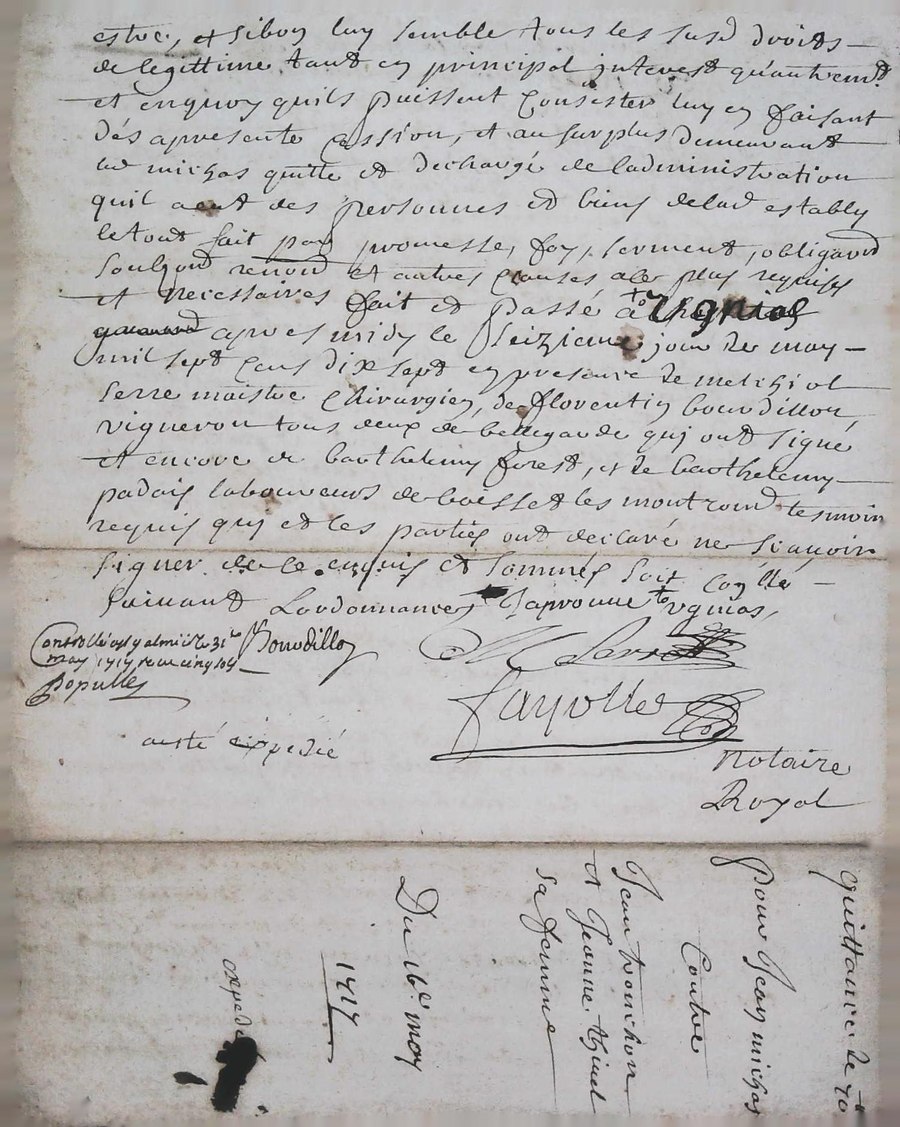 estre, et si bon luy semble tous les susd droits
de legittime tant en principal interest qu'autremt
et en quoy quils puissent consister luy en faisant
dés apresente cession, et au surplus demeurant
led michas quitte et dechargé de ladministration
quil a eut des personnes et biens delad establys
le tout fait par promesse, foy, serment, obligaoň
soubzoň renoň et autres clauses a ce plus requises
et necessaires fait et passé à
apres midy le seizieme jour de may
mil sept cens dix sept en presence de melchiol
serre maistre chirurgien, de florentin bourdillon
vigneron tous deux de bellegarde qui ont signé
et encore de barthelemy forest, et de barthelemy
padais laboureurs de boisset les montrond tesmoins
requis qui et les parties ont declaré ne scauoir
signer de ce enquis et sommés soit coñllé
suiuant Lordonnance,
Controllé a st galmier le 31e
may 1717 receu cinq sols
Populle
Bourdillon
M Serre
fayolle
notaire
Royal
a esté expedié
quittance de 70
pour Jean michas
Contre
Jean trouichon
et Jeanne thiuel
sa femme
Du 16e may
1717
expedié